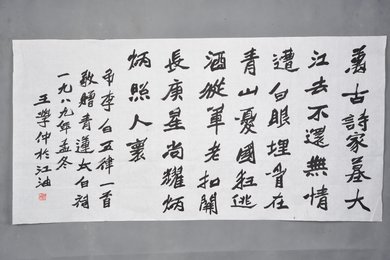 万古詩家墓大
江去不還無情
遭白眼埋骨在
青山憂國狂逃
酒從軍老扣關
長庚星尚耀炳
炳照人寰
弔李白五律一首
敬贈青蓮太白祠
一九八九年孟冬
王學仲於江油